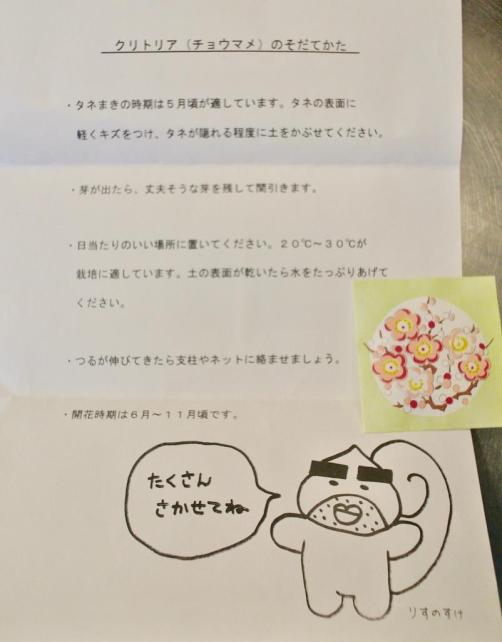 クリトリア（チョウマメ）のそだてかた
・タネまきの時期は５月頃が適しています。タネの表面に
軽くキズをつけ、タネが隠れる程度に土をかぶせてください。
・芽が出たら、丈夫そうな芽を残して間引きます。
・日当たりのいい場所に置いてください。２０℃～３０℃が
栽培に適しています。土の表面が乾いたら水をたっぷりあげて
ください。
・つるが伸びてきたら支柱やネットに絡ませましょう。
・開花時期は６月～１１月頃です。
たくさん
さかせてね
りすのすけ